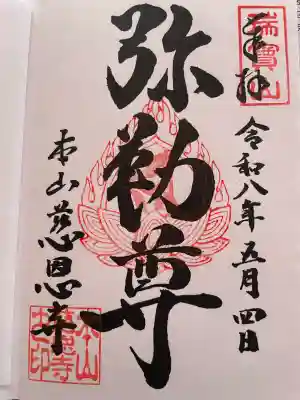 瑞寳山
奉拝
令和八年五月四日
弥勒尊
本山慈恩寺
本山慈恩寺之印